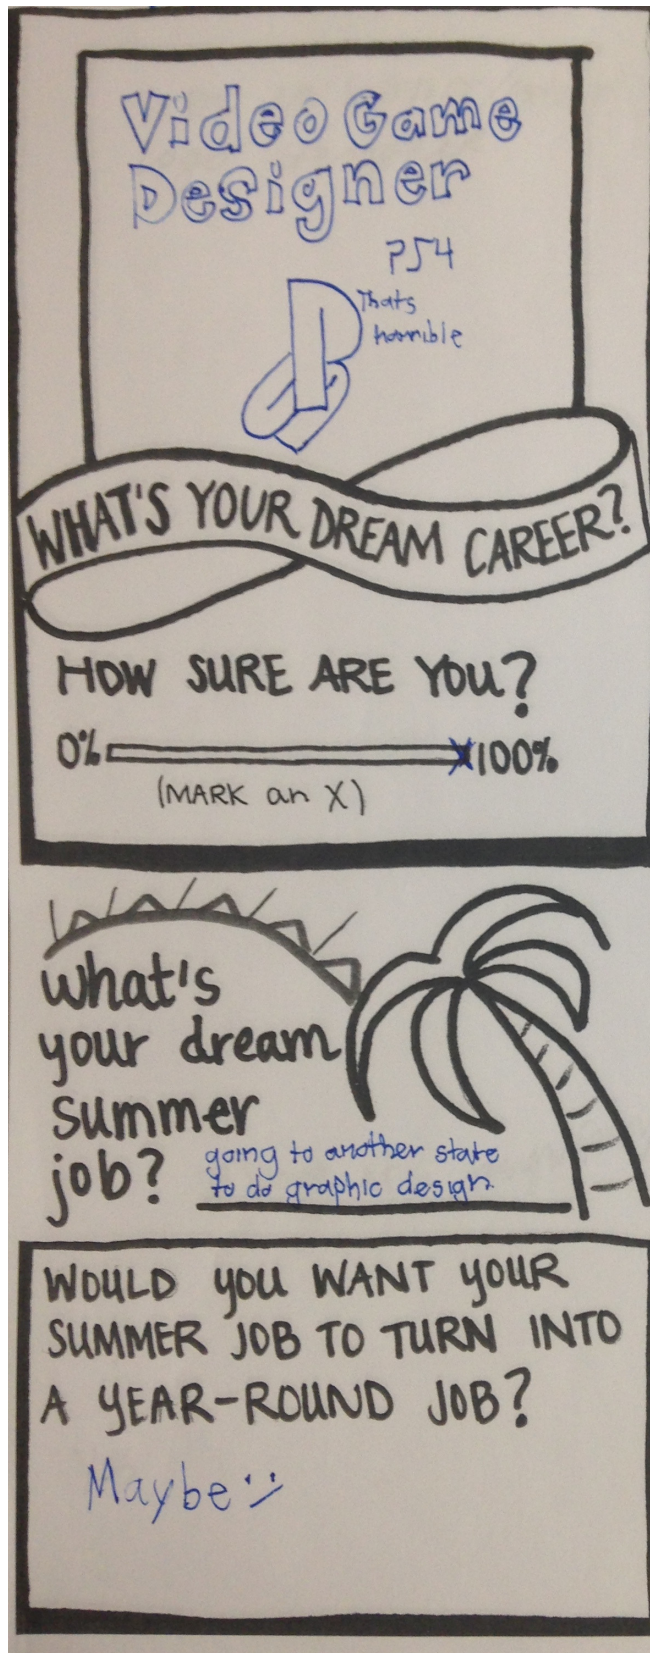 Video Game
Designer
PS4
Thats
horrible
WHAT'S YOUR DREAM CAREER?
HOW SURE ARE YOU?
0% X 100%
(MARK an X)
what's
your dream
summer
job? going to another state
to do graphic design.
WOULD YOU WANT YOUR
SUMMER JOB TO TURN INTO
A YEAR-ROUND JOB?
Maybe :)